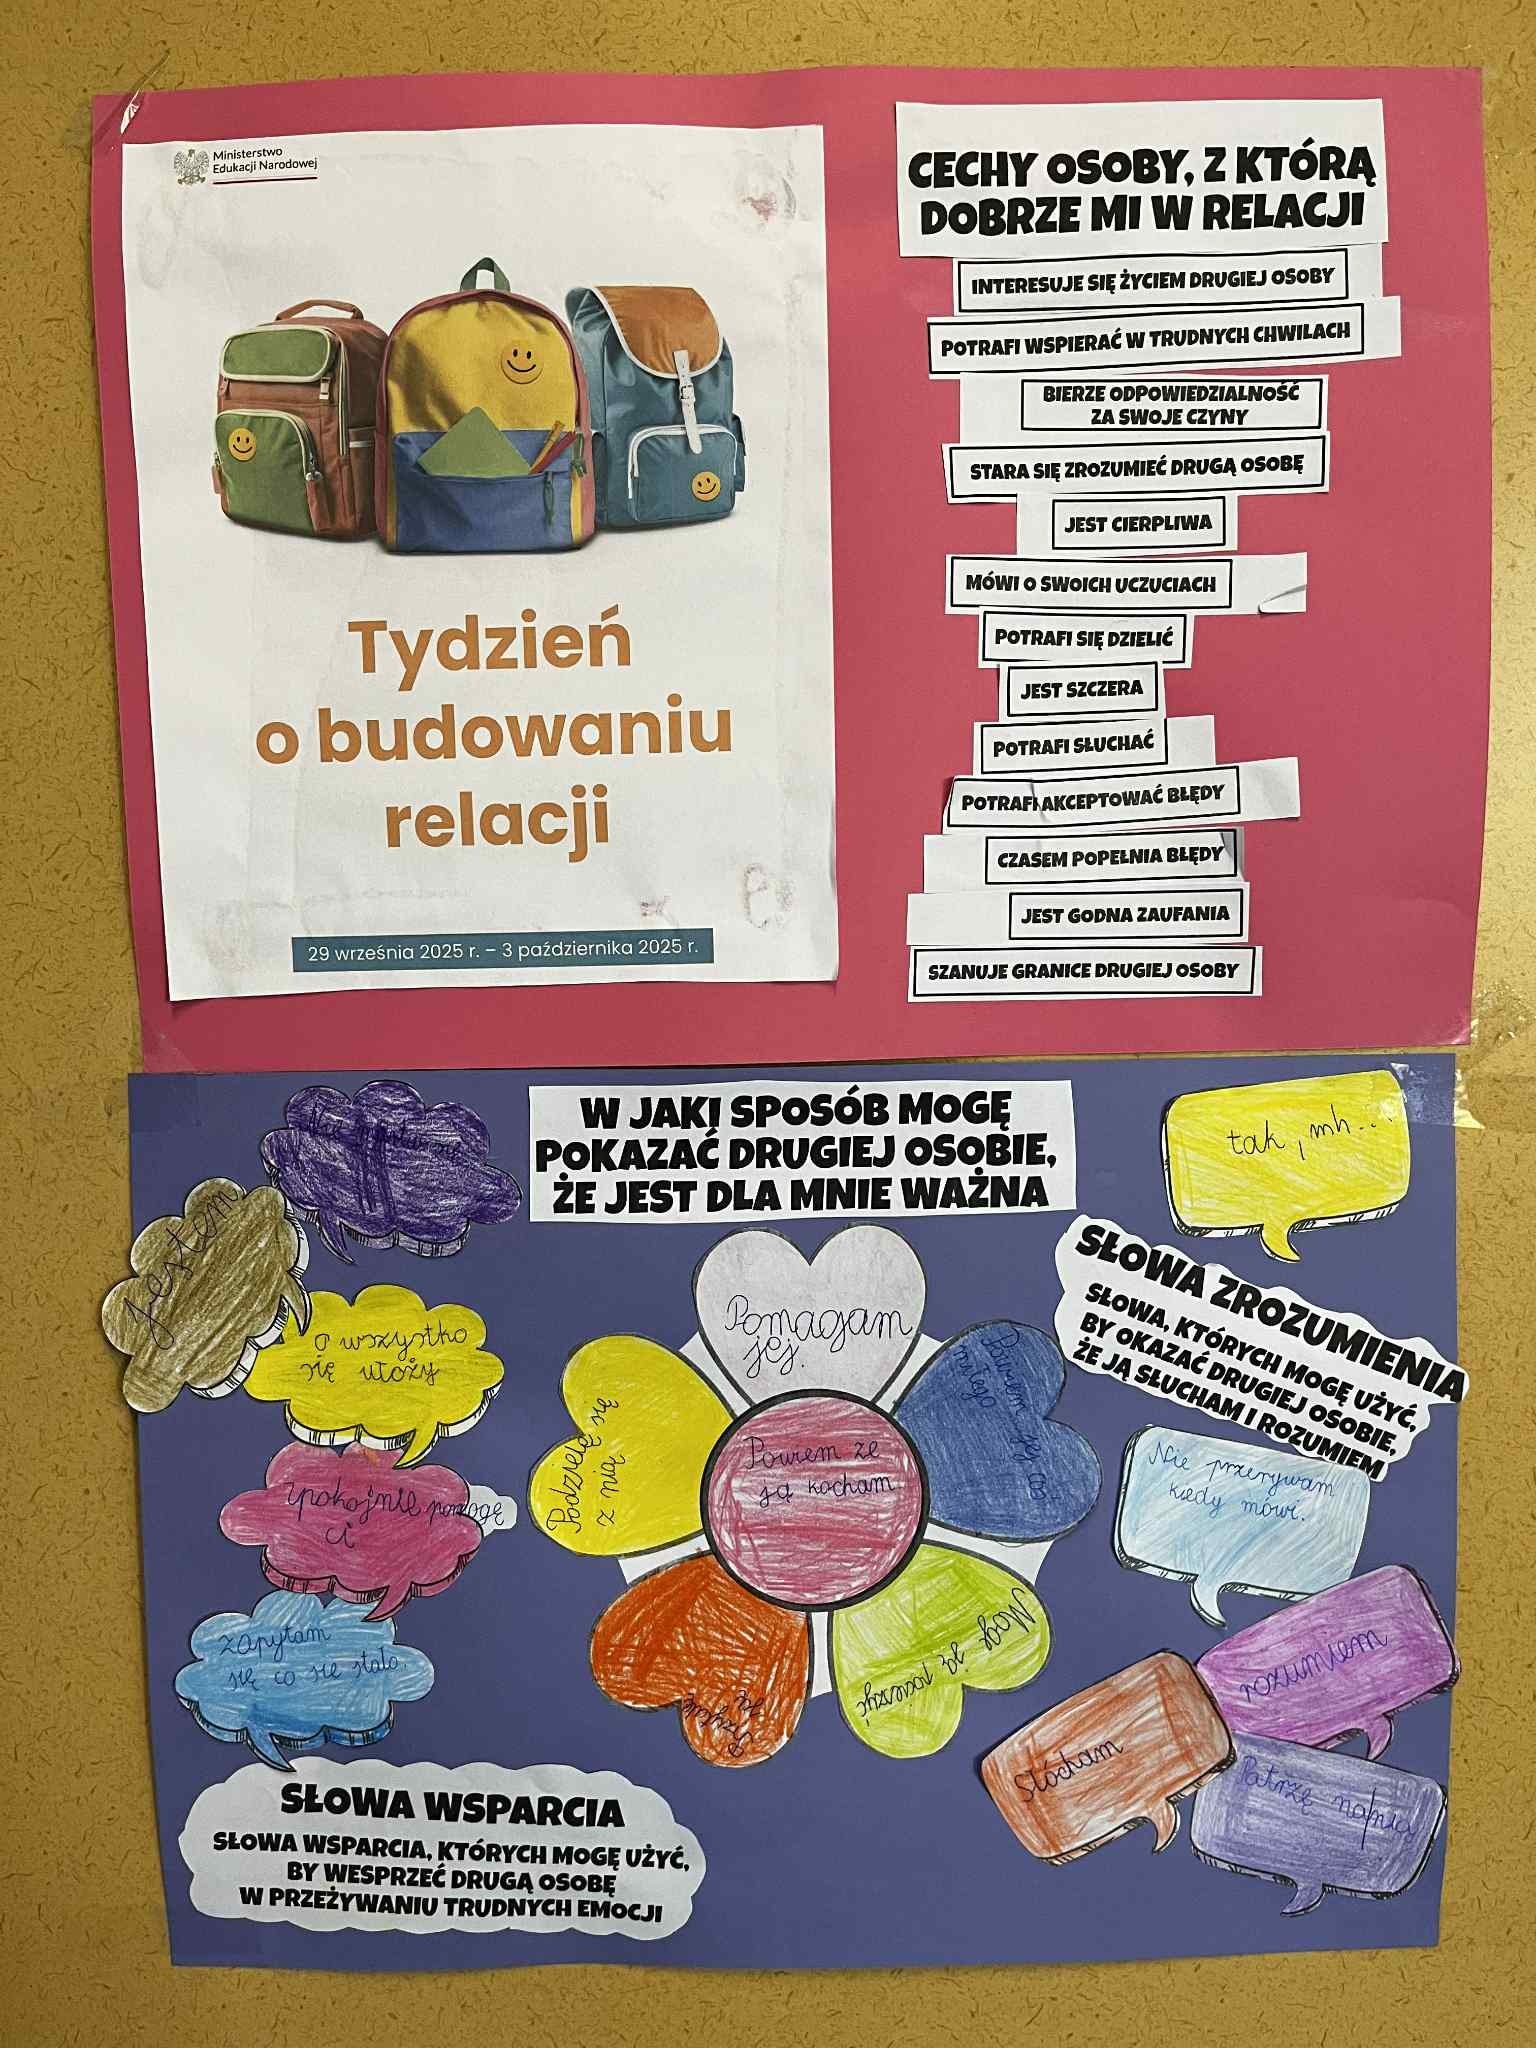 Ministerstwo
Edukacji Narodowej
Tydzień
o budowaniu
relacji
29 września 2025 r. – 3 października 2025 r.
CECHY OSOBY, Z KTÓRĄ
DOBRZE MI W RELACJI
INTERESUJE SIĘ ŻYCIEM DRUGIEJ OSOBY
POTRAFI WSPIERAĆ W TRUDNYCH CHWILACH
BIERZE ODPOWIEDZIALNOŚĆ
ZA SWOJE CZYNY
STARA SIĘ ZROZUMIEĆ DRUGĄ OSOBĘ
JEST CIERPLIWA
MÓWI O SWOICH UCZUCIACH
POTRAFI SIĘ DZIELIĆ
JEST SZCZERA
POTRAFI SŁUCHAĆ
POTRAFI AKCEPTOWAĆ BŁĘDY
CZASEM POPEŁNIA BŁĘDY
JEST GODNA ZAUFANIA
SZANUJE GRANICE DRUGIEJ OSOBY
W JAKI SPOSÓB MOGĘ
POKAZAĆ DRUGIEJ OSOBIE,
ŻE JEST DLA MNIE WAŻNA
Pomagam
jej.
Powiem jej coś
miłego
Mogę ją pocieszyć
Przytulę
ją
Podzielę się
z nią
Powiem że
ją kocham
jestem
o wszystko
się ułoży
spokojnie pomogę
ci
zapytam
się co się stało.
SŁOWA WSPARCIA
SŁOWA WSPARCIA, KTÓRYCH MOGĘ UŻYĆ,
BY WESPRZEĆ DRUGĄ OSOBĘ
W PRZEŻYWANIU TRUDNYCH EMOCJI
tak, mh...
SŁOWA ZROZUMIENIA
SŁOWA, KTÓRYCH MOGĘ UŻYĆ,
BY OKAZAĆ DRUGIEJ OSOBIE,
ŻE JĄ SŁUCHAM I ROZUMIEM
Nie przerywam
kiedy mówi.
rozumiem
Słócham
Patrzę na